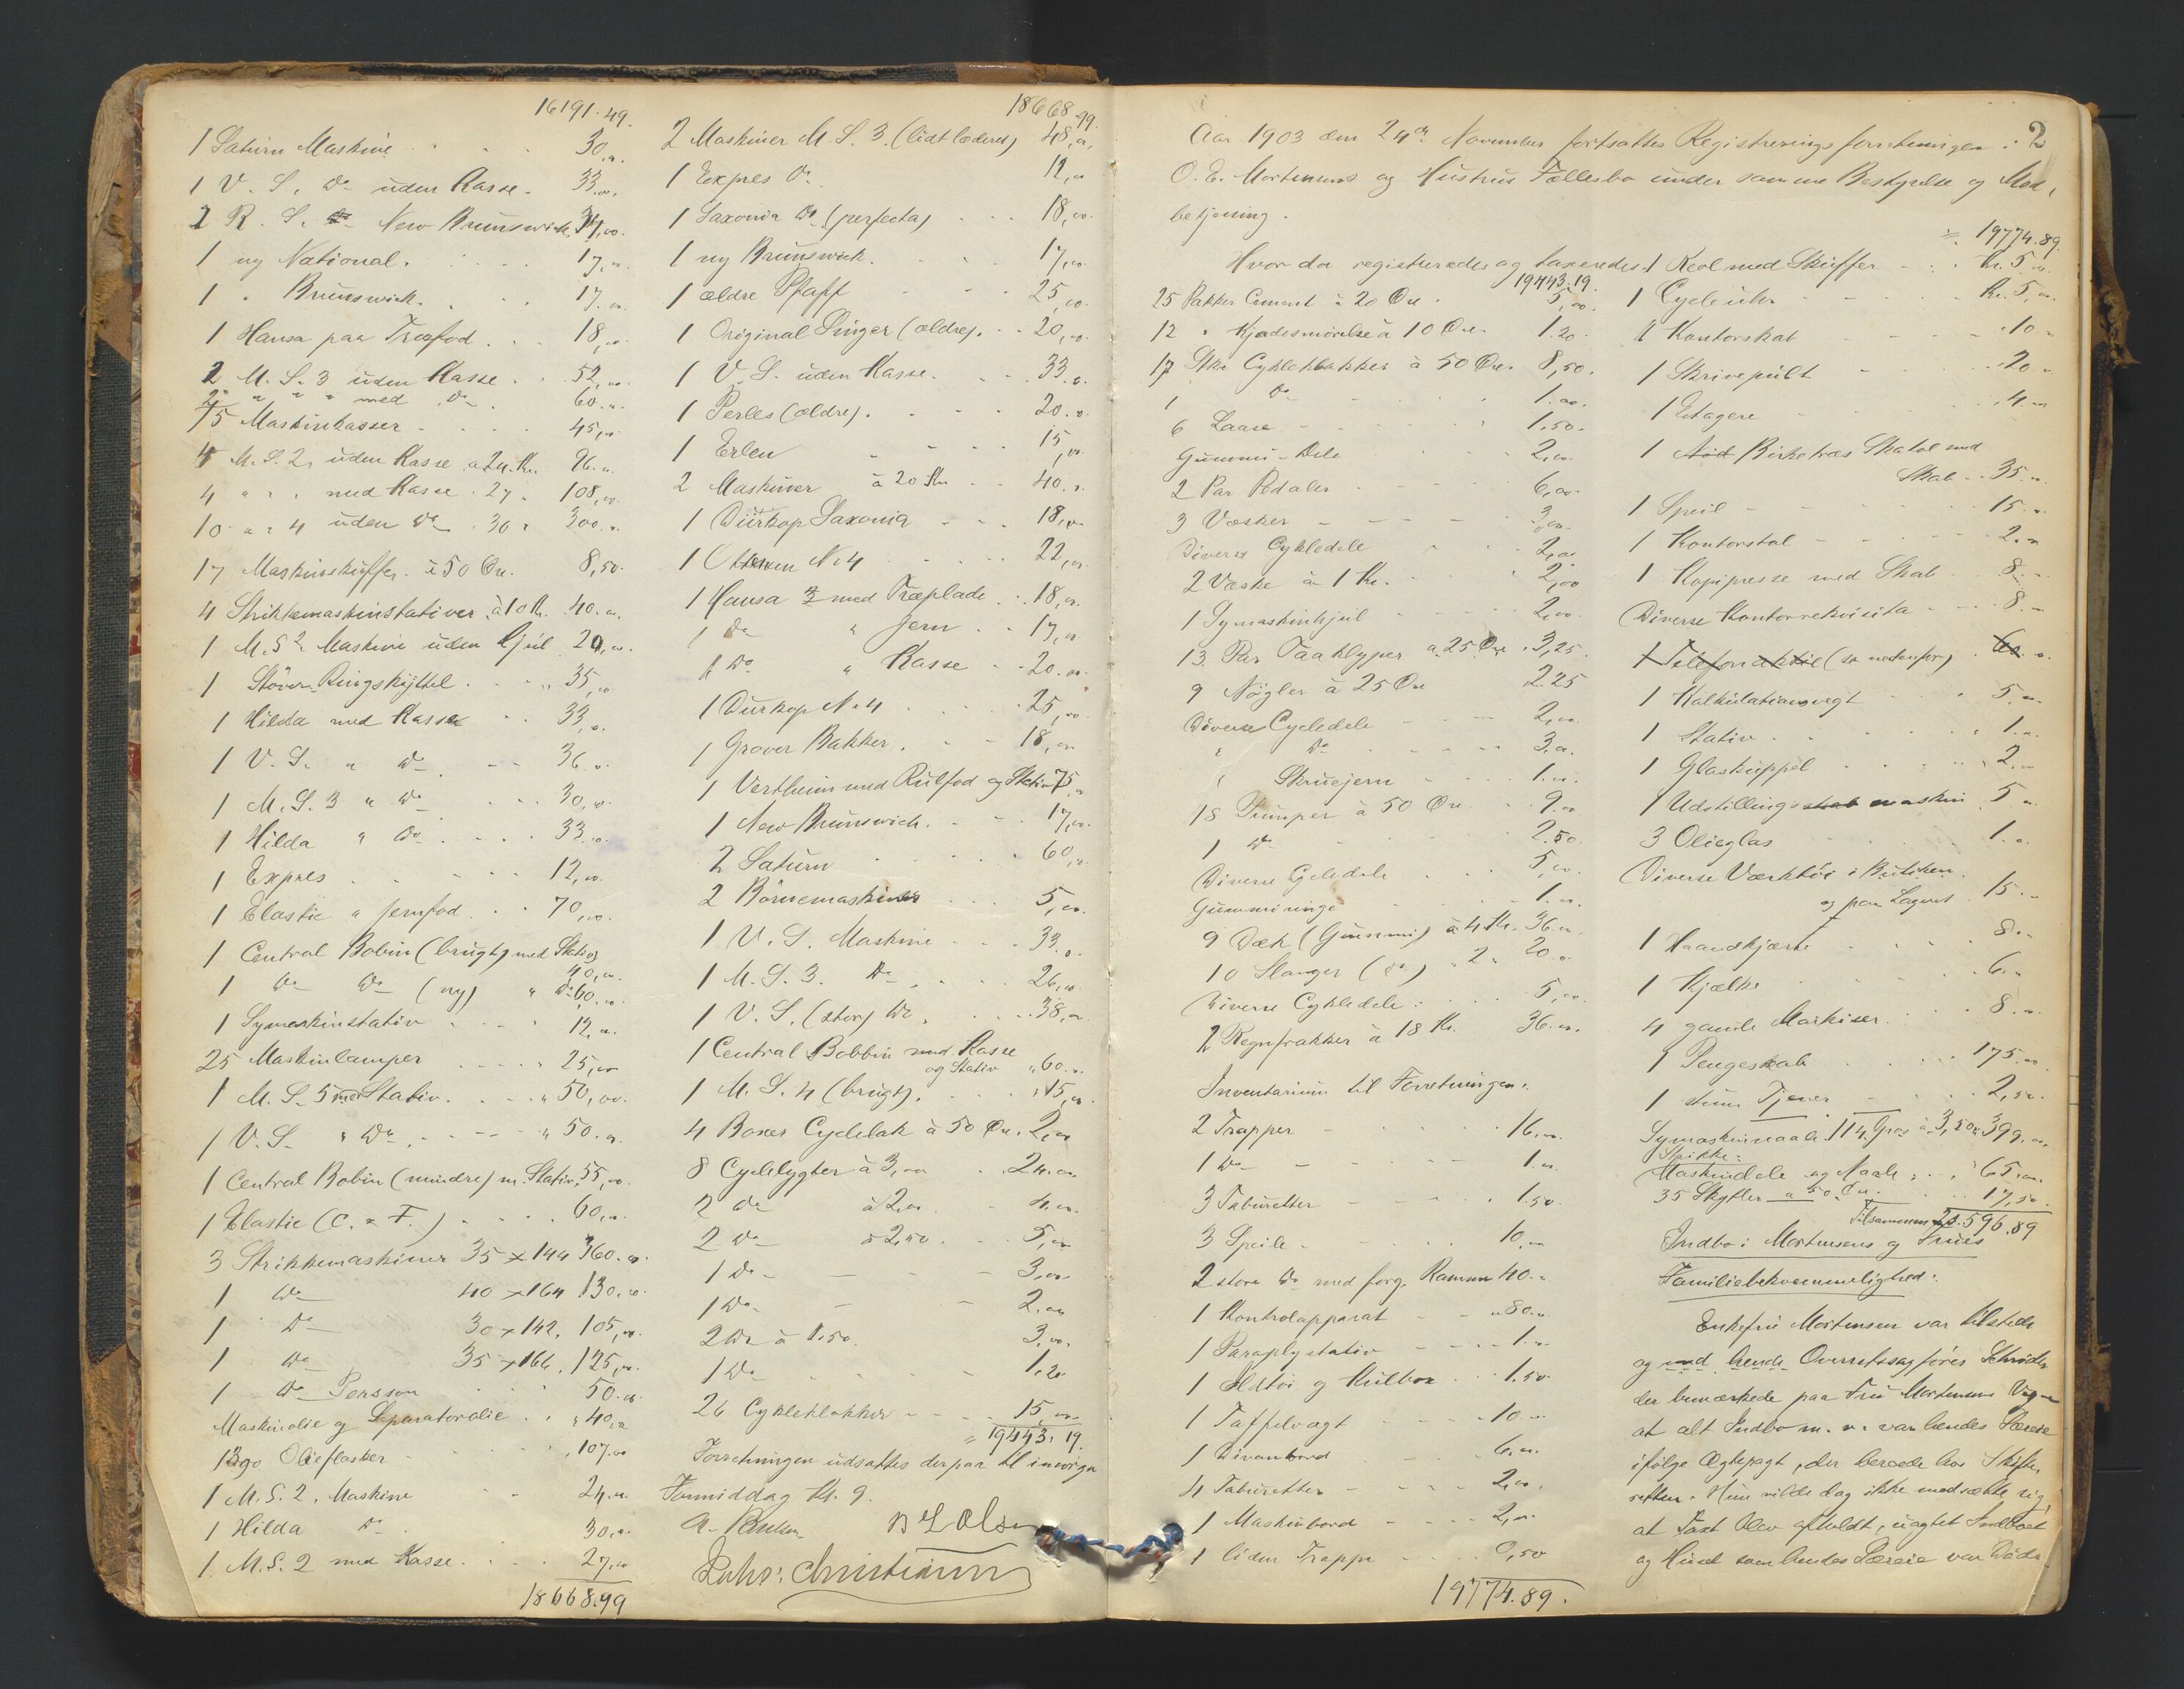 16191.49.
1 Saturn Maskine 30,00.
1 V. S. Do uden Kasse. 33,00.
2 R. S. New Brunswick 34,00.
1 ny National. 17,00.
1 " Brunswick. 17,00.
1 Hansa paa Træfod 18,00.
2 M. S. 3 uden Kasse. 52,00.
2 " " " med Do. 60.00.
15 Maskinkasser 45,00
4 M. S. 2, uden Kasse a 24. Kr. 96.00.
4 " " " med Kasse " 27 " 108,00.
10 " " 4 uden Do " 30 " 300.00.
17 Maskinskuffer. à 50 Øre. 8,50.
4 Strikkemaskinstativer, à 10 Kr. 40.00.
1 M. S 2. Maskine uden Hjul 20,00.
1 Stöver Ringskyttel. 35,00
1 Hilda med Kasse 33,00.
1 V. S. " Do 36.00.
1 M. S. 3 " Do 30,00.
1 Hilda " Do 33.00.
1 Expres 12,00.
1 Elastic " Jernfod. 70,00.
1 Central Bobin (brugt) med Stativ
40,00.
1 Do Do (ny) " Do 60.00.
1 Symaskinstativ 12,00.
25 Maskinlamper 25,00
1 M. S. 5 med Stativ. 50,00.
1 V. S. " Do 50.00.
1 Central Bobin (mindre) m. Stativ. 55,00.
1 Elastic (C. & F.) 60,00.
3 Strikkemaskiner 35 x 144 360.00.
1 Do 40 x 164 130.00.
1 Do 30 x 142. 105,00.
1 Do 35 x 166. 125,00.
1 Do Persson 50.00.
Maskinolie og Separatorolie 40,00
1390 Olieflasker 107.00
1 M. S. 2. Maskine 24.00.
1 Hilda Do. 30,00.
1 M. S. 2 med Kasse. 27,00
18668.99
18668.99.
2 Maskiner M. S. 3. (lidt læderet) 48,00.
1 Expres Do. 12,00
1 Saxonia Do (perfecta) 18,00.
1 ny Brunswick. 17,00
1 ældre Pfaff 25,00.
1 Original Singer (ældre). 20,00.
1 V. S. uden Kasse. 33.00.
1 Perles (ældre). 20.00.
1 Erlen 15,00.
2 Maskiner à 20 Kr. 40.00.
1 Dürkop Saxonia 18,00.
1 Ottesen No 4 22,00.
1 Hansa med Træplade 18,00.
1 Do " Jern 17,00
1 Do " Kasse 20.00.
1 Dürkop No 4 25,00.
1 Grover Bakker. 18,00.
1 Vertheim med Rulfod og Stativ 75,00
1 New Brunswick. 17,00.
2 Saturn 60,00.
2 Börnemaskiner 5,00.
1 V. S. Maskine 33.00.
1 M. S. 3. Do 26,00.
1 V. S. (stor) Do. 38,00.
1 Central Bobbin med Kasse
og Stativ " 60.00.
1 M. S. 4 (brugt). 15,00.
4 Boxes Cyclelak à 50 Øre. 2,00
8 Cyclelygter à 3,00 24.00
2 Do à 2,00 4.00.
2 Do à 2,50 5,00
1 Do 3,00
1 Do 2.00
2 Do à 1.50. 3,00.
1 Do 1,20
26 Cykleklokker 15,00
= 19443.19.
Forretningen udsattes derpaa til imorgen
Formiddag Kl. 9.
2
Aar 1903 den 24de November fortsattes Registreringsforretningen i
O. E. Mortensens og Hustrus Fællesbo under samme Bestyrelse og Med-
betjening.
Hvor da registreredes og taxeredes:
19443.19.
25 Pakker Cement à 20 Øre. 5,00
12 " Kjædesmörelse à 10 Øre 1.20
17 Stkr Cykleklokker à 50 Øre 8,50.
1 Do 1.00.
6 Laase 1.50.
Gummi-Dele 2,00.
2 Par Pedaler 6,00.
3 Væsker 3,00
Diverse Cykledele 2,00
2 Væske à 1 Kr. 2,00
1 Symaskinhjul 2,00.
13 Par Taaklyper a 25 Øre 3,25.
9 Nøgler à 25 Øre 2.25
Diverse Cycledele 2,00.
" Do 3.00.
" Skruejern 1.00.
18 Pumper à 50 Øre. 9.00
1 Do 2.50.
Diverse Cycledele 5,00.
Gummiringe 1.00.
9 Dæk (Gummi) à 4 Kr. 36.00.
10 Slanger (Do) " 2 " 20.00
Diverse Cykledele. 5,00.
2 Regnfrakker à 18 Kr. 36.00.
Inventarium til Forretningen.
2 Trapper 16,00.
1 Do 1.00.
3 Taburetter 1.50.
3 Speile 10,00
2 store Do med forg. Ramme 40.00
1 Kontrolapparat 80.00
1 Paraplystativ 1.00
1 Ildtöi og Kulbox 1.50
1 Taffelvægt 10.00
1 Divanbord 6.00.
4 Taburetter 2,00.
1 Maskinbord 2,00.
1 liden Trappe 0,50
19774.89.
= 19774.89.
1 Reol med Skuffer Kr. 5,00.
1 Cycleuhr Kr. 5,00.
1 Kontorskab 10.00
1 Skrivepult 20.00
1 Etagere 4.00
1 Birketræs Skatol med
Skab 35.00
1 Speil 15.00
1 Kontorstol 2.00
1 Kopipresse med Skab 8.00
Diverse Kontorrekvisita 8.00
1 Telefonaktie (se nedenfor) 60.00
1 Kalkulationsvegt 5,00.
1 Stativ 1.00.
1 Glaskuppel 2.00
1 Udstillingsskab maskin 5.00
3 Olieglas 1.00.
Diverse Værktöi i Butiken
og paa Lageret 15.00
1 Haandkjærre 8.00
1 Kjælke 6.00
4 gamle Markiser 8.00
1 Pengeskab 175.00
1 stum Tjener 2,50.
Symaskinnaale 114 Gros à 3,50 399.00.
Strikke:
Maskindele og Naale 65.00.
35 Skytler a 50 Øre. 17,50.
Tilsammen 20.596.89
Indbo i Mortensens og Frues
Familiebekvemmelighed:
Enkefru Mortensen var tilstede
og med hende Overretssagförer Schröder
der bemærkede paa Fru Mortensens Vegne
at alt Indbo m. v. var hendes Særeie
ifölge Ægtepagt, der beroede hos Skifte-
retten. Hun vilde dog ikke modsætte sig,
at Taxt blev afholdt, uagtet Indboet
og Huset som hendes Særeie var Döds